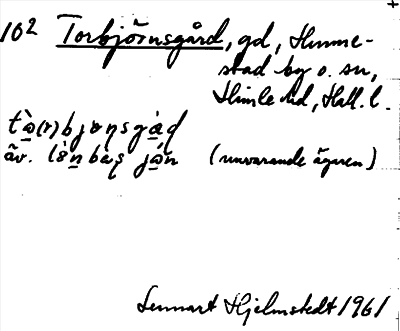 10² Torbjörnsgård, gd, Himme-
stad by o. sn,
Himle hd, Hall. l.
tò̱(r)bjɷṇsgà̱ḍ
äv. lò̱nbàṣ já̱n (nuvarande ägaren)
Lennart Hjelmstedt 1961